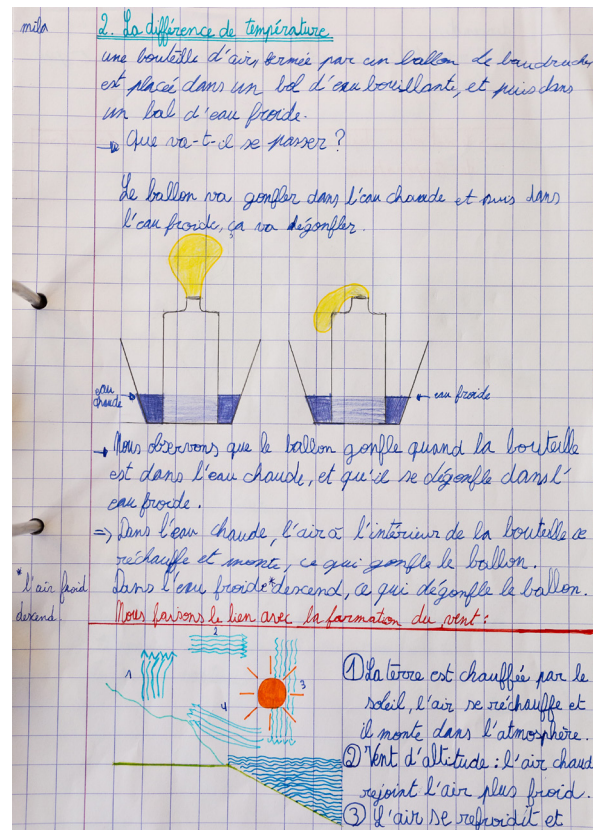 mila
2. La différence de température
une bouteille d'air, fermée par un ballon de baudruche,
est placée dans un bol d'eau bouillante, et puis dans
un bol d'eau froide.
→ Que va-t-il se passer ?
Le ballon va gonfler dans l'eau chaude et puis dans
l'eau froide, ça va dégonfler.
eau
chaude
eau froide
→ Nous observons que le ballon gonfle quand la bouteille
est dans l'eau chaude, et qu'il se dégonfle dans l'
eau froide.
=> Dans l'eau chaude, l'air à l'intérieur de la bouteille se
réchauffe et monte, ce qui gonfle le ballon.
Dans l'eau froide * descend, ce qui dégonfle le ballon.
* l'air froid
descend.
Nous faisons le lien avec la formation du vent :
1
2
3
4
① La terre est chauffée par le
soleil, l'air se réchauffe et
il monte dans l'atmosphère.
② Vent d'altitude : l'air chaud
rejoint l'air plus froid.
③ L'air se refroidit et